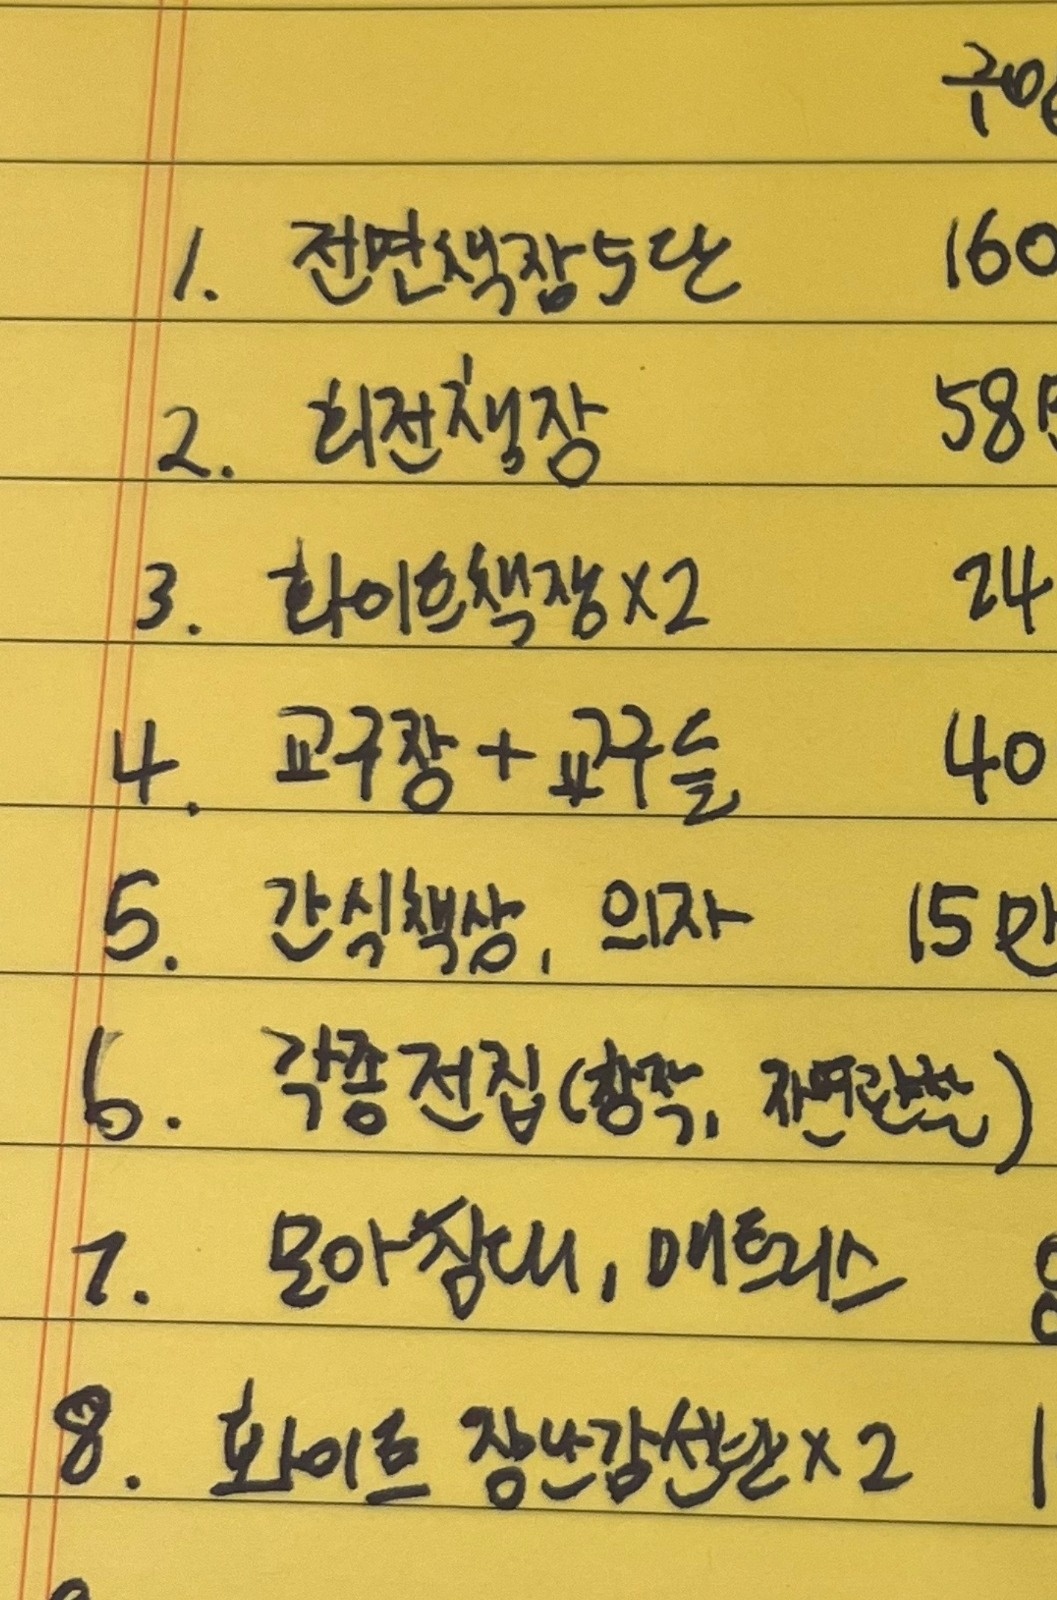 구입
1. 전면책장5단 160
2. 회전책장 58만
3. 화이트책장x2 24
4. 교구장 + 교구들 40
5. 간식책상, 의자 15만
6. 각종전집(창작, 자연관찰)
7. 모아침대, 매트리스
8. 화이트 장난감선반x2 1